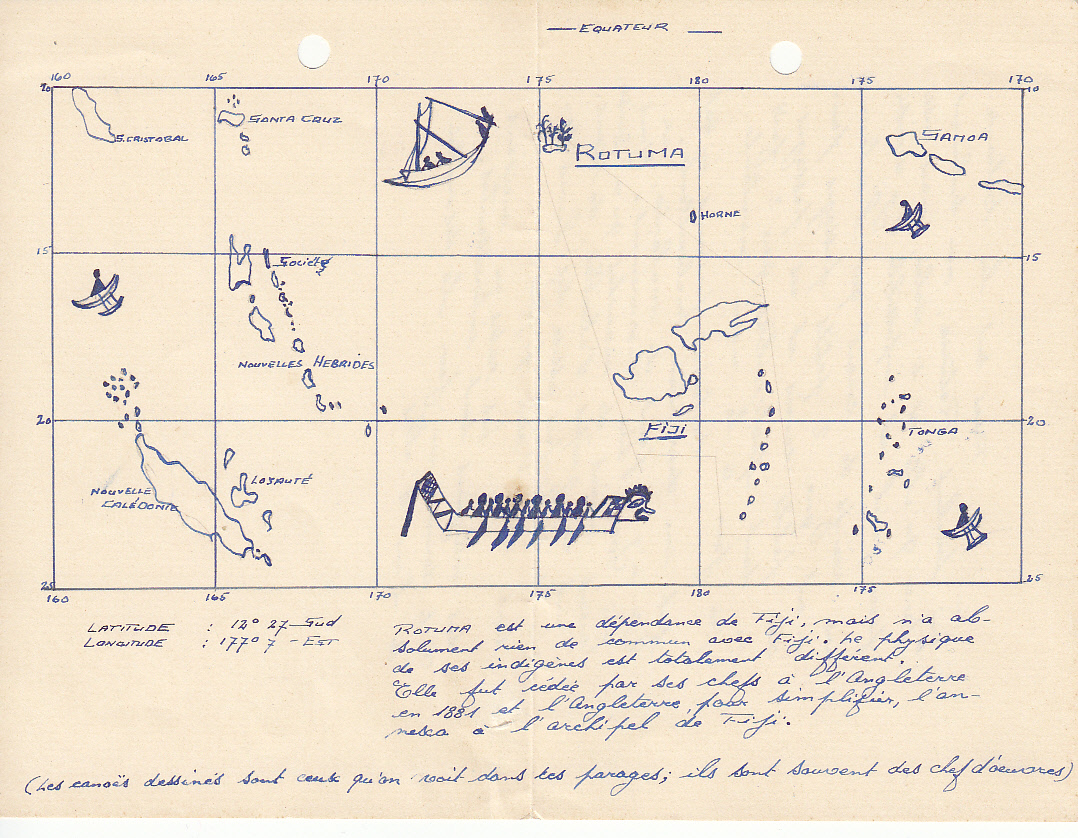 — EQUATEUR —
160 165 170 175 180 175 170
10 10
S.CRISTOBAL
SANTA CRUZ
ROTUMA
SAMOA
HORNE
15 15
Société
NOUVELLES HEBRIDES
20 20
FIJI
TONGA
LOYAUTÉ
NOUVELLE
CALÉDONIE
25 25
160 165 170 175 180 175
LATITUDE : 12° 27 - Sud
LONGITUDE : 177° 7 - EST
ROTUMA est une dépendance de Fiji, mais n'a ab-
solument rien de commun avec Fiji. Le physique
de ses indigènes est totalement différent.
Elle fut cédée par ses chefs à l'Angleterre
en 1881 et l'Angleterre, pour simplifier, l'an-
nexa à l'archipel de Fiji.
(Les canoës dessinés sont ceux qu'on voit dans les parages; ils sont souvent des chef d'oeuvres)